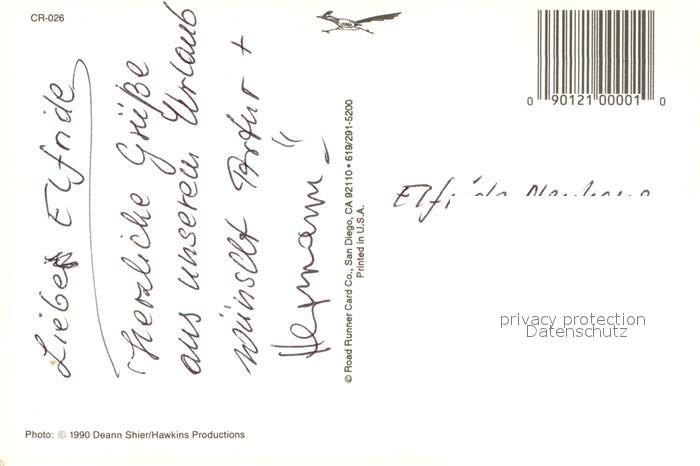 CR-026
Liebe Elfride
Herzliche Grüße
aus unserem Urlaub
wünscht +
Hermann
© Road Runner Card Co., San Diego, CA 92110 • 619/291-5200
Printed in U.S.A.
0 90121 00001 0
privacy protection
Datenschutz
Photo: © 1990 Deann Shier/Hawkins Productions